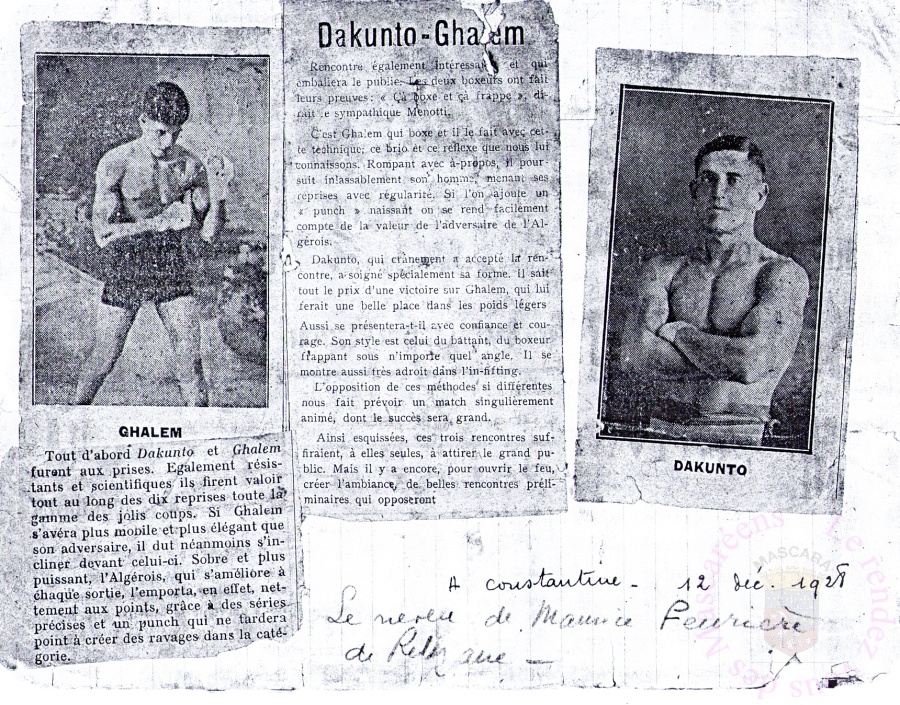 GHALEM
Tout d'abord Dakunto et Ghalem
furent aux prises. Egalement résis-
tants et scientifiques ils firent valoir
tout au long des dix reprises toute la
gamme des jolis coups. Si Ghalem
s'avéra plus mobile et plus élégant que
son adversaire, il dut néanmoins s'in-
cliner devant celui-ci. Sobre et plus
puissant, l'Algérois, qui s'améliore à
chaque sortie, l'emporta, en effet, net-
tement aux points, grâce à des séries
précises et un punch qui ne tardera
point à créer des ravages dans la caté-
gorie.
Dakunto-Ghalem
Rencontre également intéressa et qui
emballera le public. Les deux boxeurs ont fait
leurs preuves : « Ça boxe et ça frappe », di-
rait le sympathique Menotti.
C'est Ghalem qui boxe et il le fait avec cet-
te technique, ce brio et ce réflexe que nous lui
connaissons. Rompant avec à-propos, il pour-
suit inlassablement son homme, menant ses
reprises avec régularité. Si l'on ajoute un
« punch » naissant on se rend facilement
compte de la valeur de l'adversaire de l'Al-
gérois.
Dakunto, qui crânement a accepté la ren-
contre, a soigné spécialement sa forme. Il sait
tout le prix d'une victoire sur Ghalem, qui lui
ferait une belle place dans les poids légers
Aussi se présentera-t-il avec confiance et cou-
rage. Son style est celui du battant, du boxeur
frappant sous n'importe quel angle. Il se
montre aussi très adroit dans l'in-fifting.
L'opposition de ces méthodes si différentes
nous fait prévoir un match singulièrement
animé, dont le succès sera grand.
Ainsi esquissées, ces trois rencontres suf-
firaient, à elles seules, à attirer le grand pu-
blic. Mais il y a encore, pour ouvrir le feu,
créer l'ambiance, de belles rencontres préli-
minaires qui opposeront
DAKUNTO
A constantine - 12 déc. 1928
Le neveu de Maurice
de Relizane -
MASCARA
Le rendez
des Mascaréens